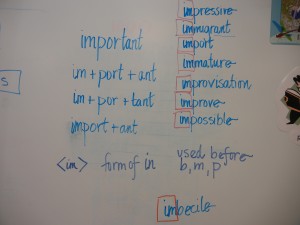 important
im + port + ant
im + por + tant
import + ant
impressive
immigrant
import
immature
improvisation
improve
impossible
<im> form of in used before
b, m, p
imbecile
s